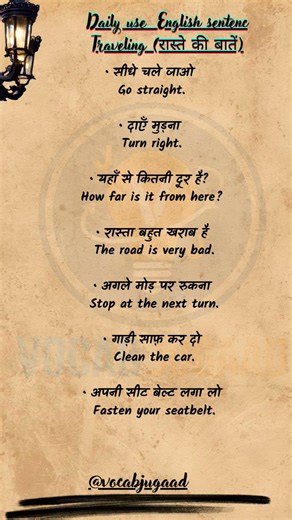 Daily use English sentenc
Traveling (रास्ते की बातें)
• सीधे चले जाओ
Go straight.
• दाएँ मुड़ना
Turn right.
• यहाँ से कितनी दूर है?
How far is it from here?
• रास्ता बहुत खराब है
The road is very bad.
• अगले मोड़ पर रुकना
Stop at the next turn.
• गाड़ी साफ़ कर दो
Clean the car.
• अपनी सीट बेल्ट लगा लो
Fasten your seatbelt.
@vocabjugaad